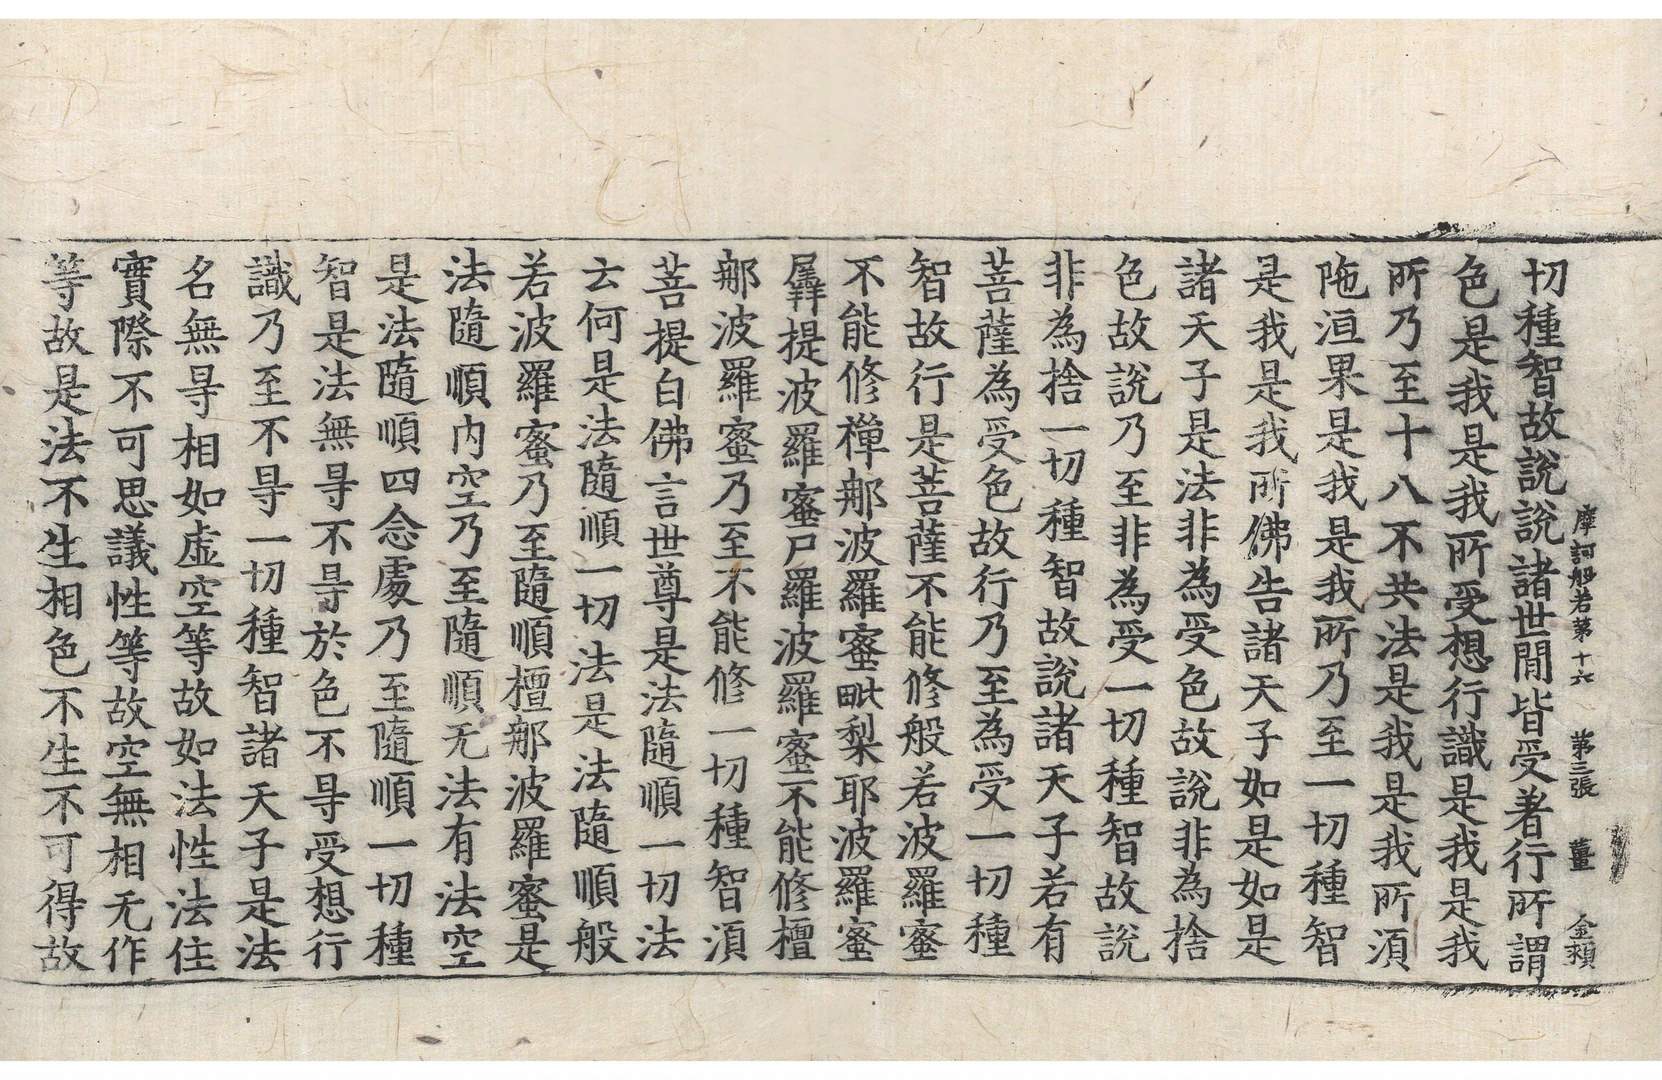 摩訶般若第十六 第三張 薑
切種智故說說諸世閒皆受著行所謂
色是我是我所受想行識是我是我
所乃至十八不共法是我是我所湏
陁洹果是我是我所乃至一切種智
是我是我所佛告諸天子如是如是
諸天子是法非為受色故說非為捨
色故說乃至非為受一切種智故說
非為捨一切種智故說諸天子若有
菩薩為受色故行乃至為受一切種
智故行是菩薩不能修般若波羅蜜
不能修禪那波羅蜜毗梨耶波羅蜜
羼提波羅蜜尸羅波羅蜜不能修檀
那波羅蜜乃至不能修一切種智湏
菩提白佛言世尊是法隨順一切法
云何是法隨順一切法是法隨順般
若波羅蜜乃至隨順檀那波羅蜜是
法隨順內空乃至隨順无法有法空
是法隨順四念處乃至隨順一切種
智是法無㝵不㝵於色不㝵受想行
識乃至不㝵一切種智諸天子是法
名無㝵相如虛空等故如法性法住
實際不可思議性等故空無相无作
等故是法不生相色不生不可得故